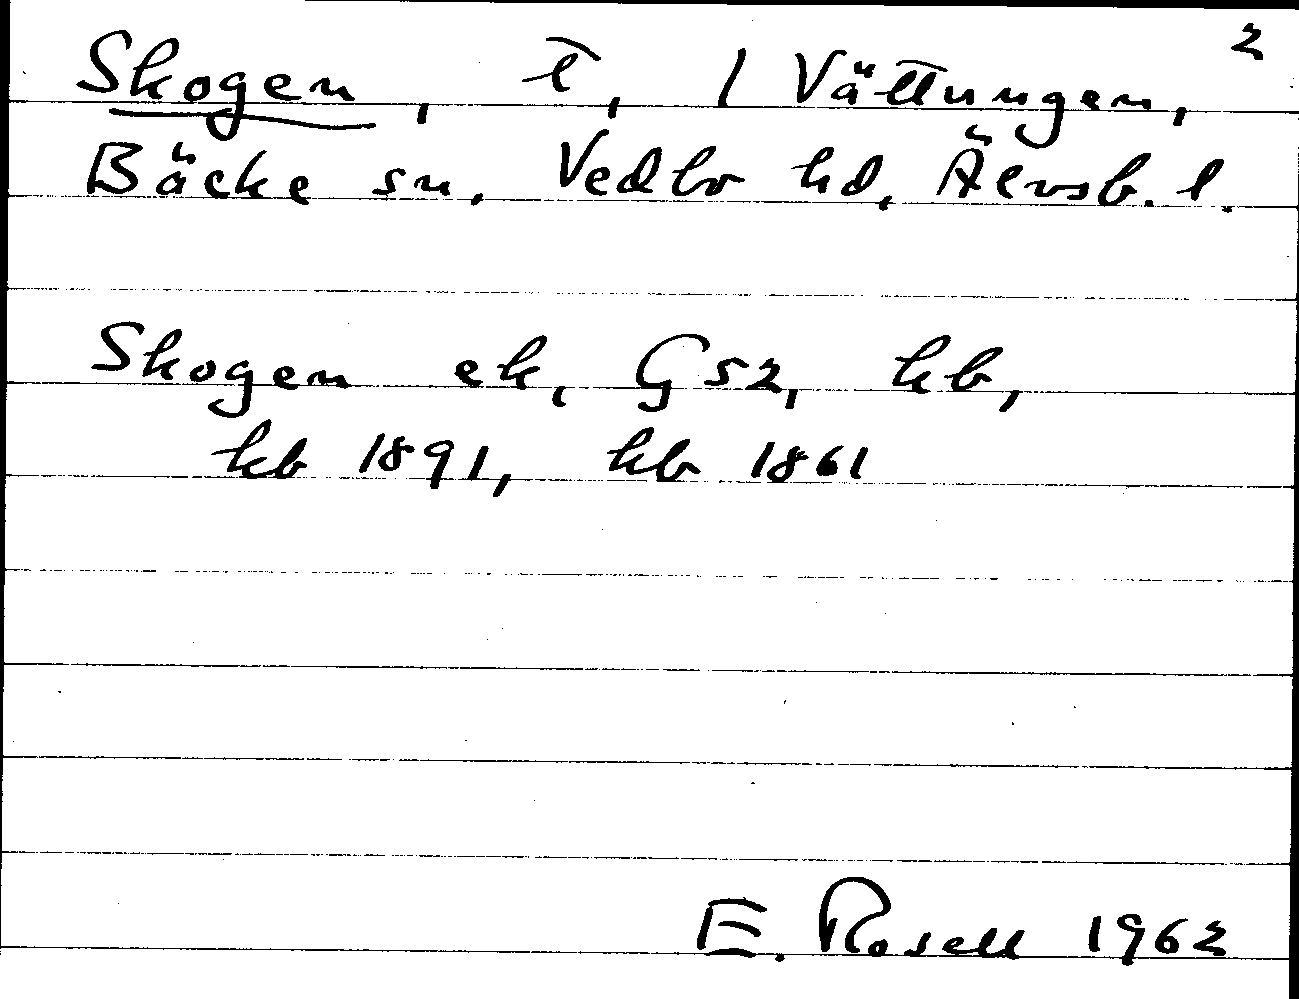 2
Skogen, t, 1 Vättungen,
Bäcke sn, Vedbo hd, Älvsb. l.
Skogen ek, G52, kb,
hb 1891, hb 1861
E. Rosell 1962